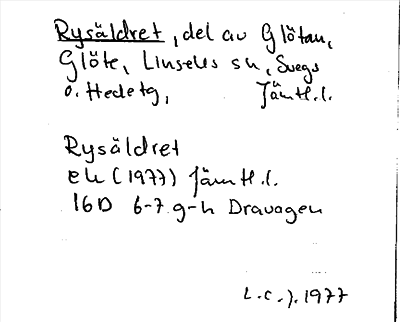 Rysäldret, del av Glötan,
Glöte, Linsells sn, Svegs
o. Hede tg, Jämtl.l.
Rysäldret
ek (1977) Jämtl.l.
16D 6-7 g-h Dravagen
L.C.J. 1977